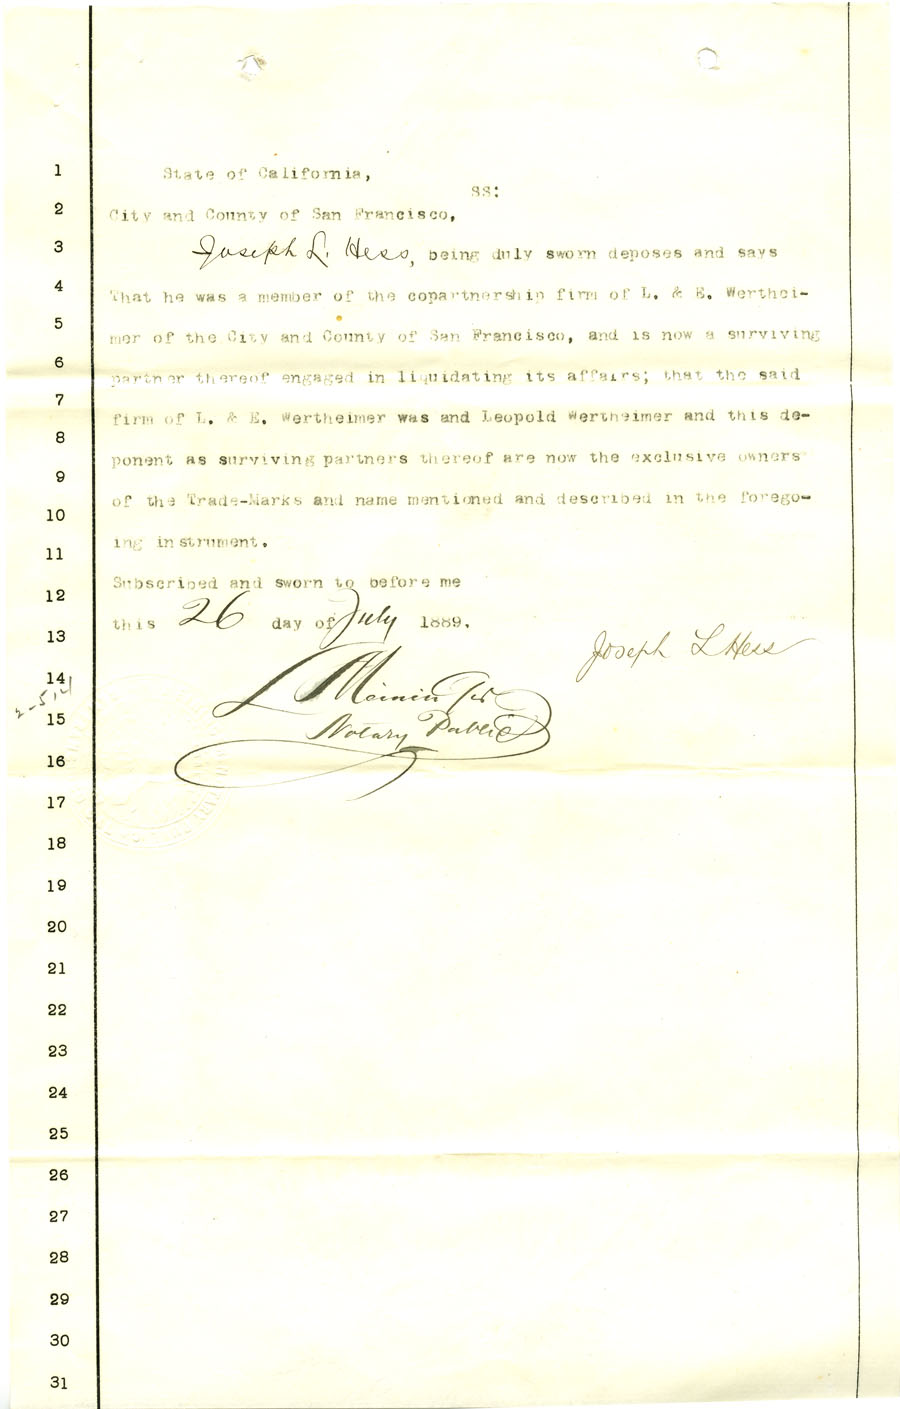 1 State of California,
SS:
2 City and County of San Francisco,
3 Joseph L. Hess, being duly sworn deposes and says
4 That he was a member of the copartnership firm of L. & E. Werthei-
5 mer of the City and County of San Francisco, and is now a surviving
6 partner thereof engaged in liquidating its affairs; that the said
7 firm of L. & E. Wertheimer was and Leopold Wertheimer and this de-
8 ponent as surviving partners thereof are now the exclusive owners
9 of the Trade-Marks and name mentioned and described in the forego-
10 ing instrument.
11 Subscribed and sworn to before me
12 this 26 day of July 1889.
13 Joseph L Hess
14
15 Notary Public
16
17
18
19
20
21
22
23
24
25
26
27
28
29
30
31